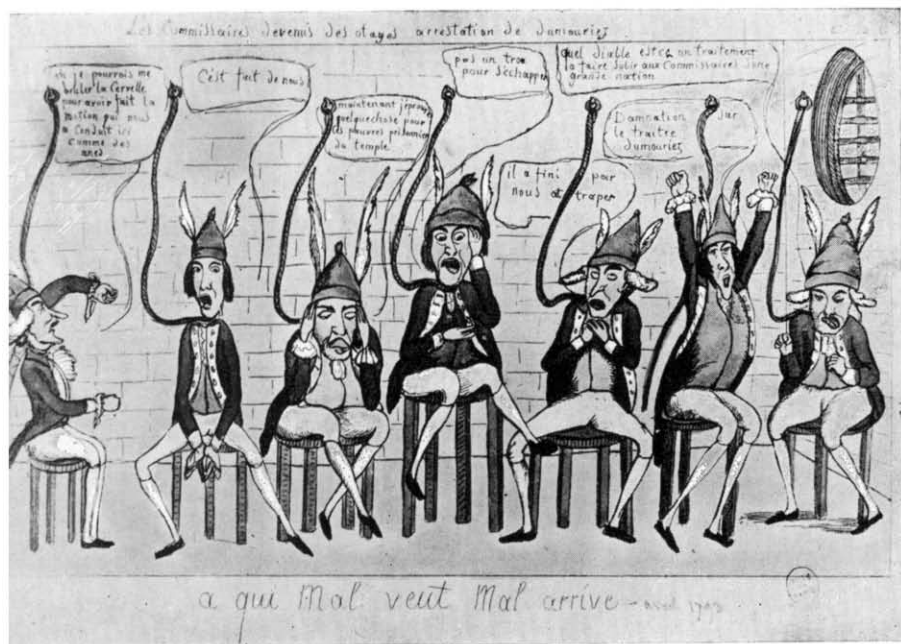 Les Commissaires devenus des otages arrestation de dumouriez
ah je pourrois me
bruler la Cervelle
pour avoir fait la
motion qui nous
a conduit ici
comme des
anes
C'est fait de nous
maintenant j'éprouve
quelquechose pour
les pauvres prisonniers
du temple
pas un trou
pour s'échapper
il a fini par
nous attraper
quel diable est ce un traitement
a faire subir aux Commissaires d'une
grande nation
Damnation sur
le traitre
dumouriez
a qui Mal veut Mal arrive - avril